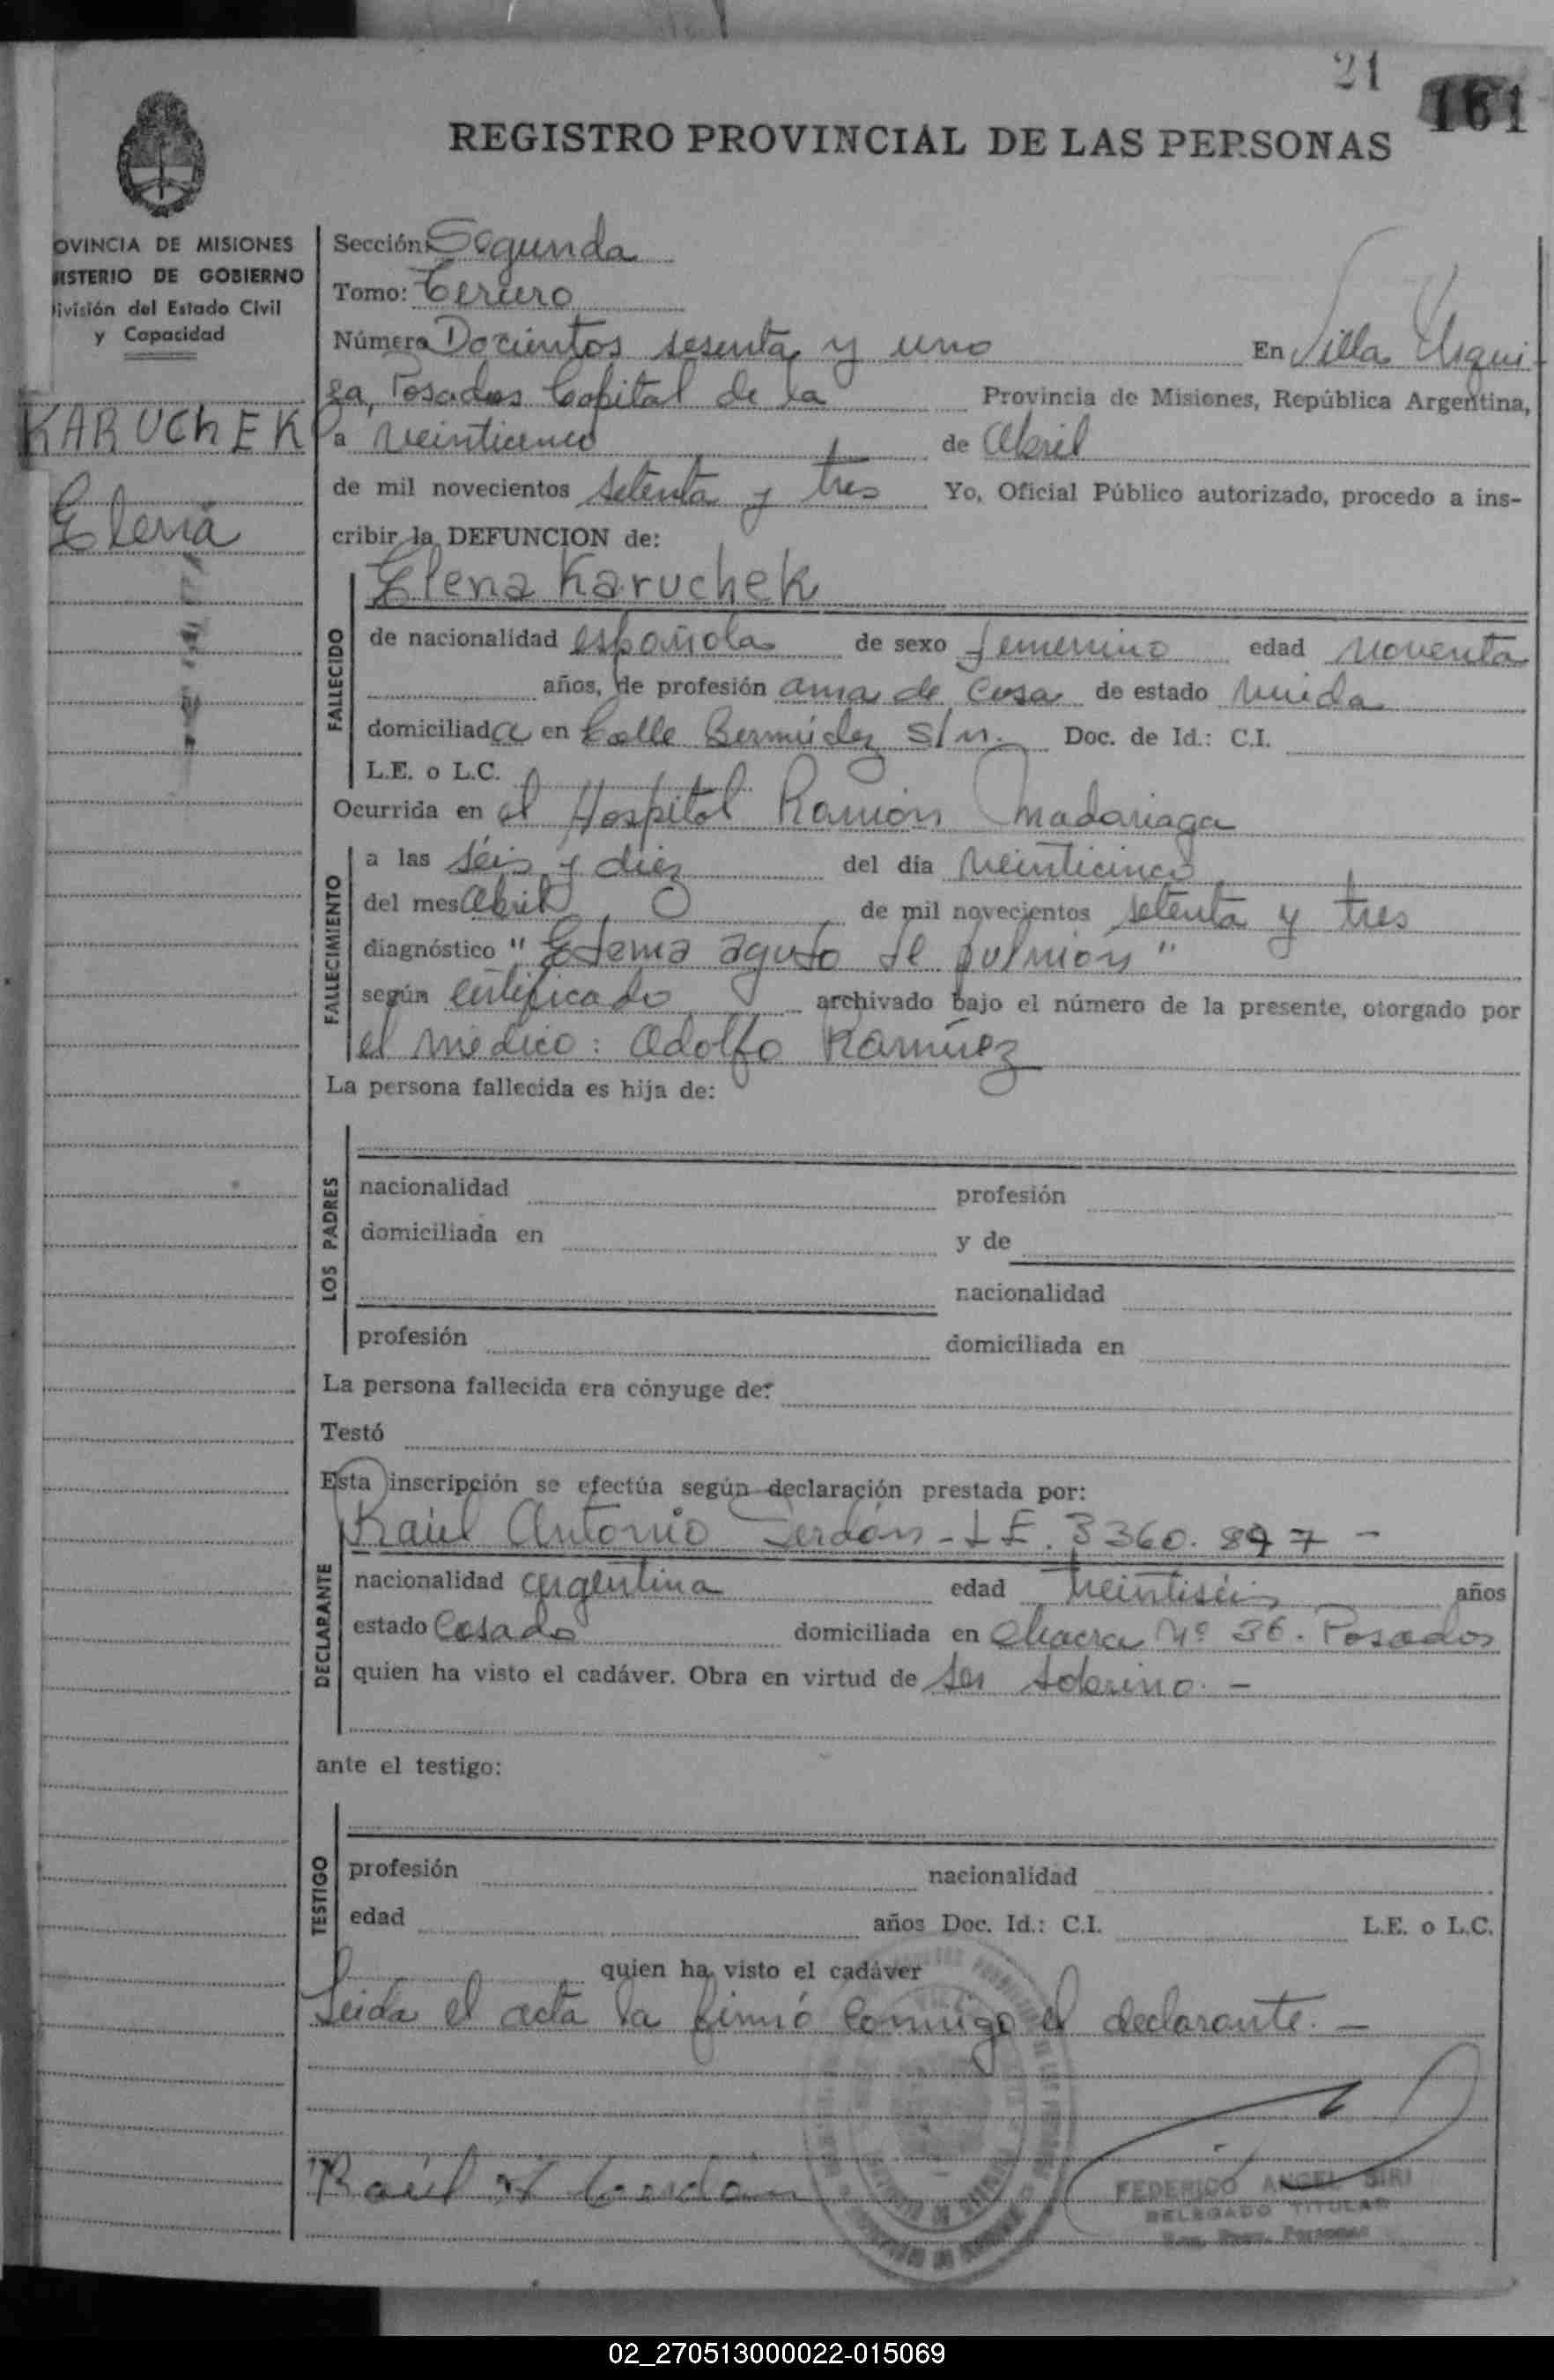 21
161
REGISTRO PROVINCIAL DE LAS PERSONAS
OVINCIA DE MISIONES
ISTERIO DE GOBIERNO
ivisión del Estado Civil
y Capacidad
KARUCHEK
Elena
Sección: Segunda
Tomo: Tercero
Número Docientos sesenta y uno En Villa Urqui-
za, Posadas Capital de la Provincia de Misiones, República Argentina,
a veinticinco de abril
de mil novecientos setenta y tres Yo, Oficial Público autorizado, procedo a ins-
cribir la DEFUNCION de:
Elena Karuchek
FALLECIDO
de nacionalidad española de sexo femenino edad noventa
años, de profesión ama de casa de estado viuda
domiciliada en Calle Bermúdez s/n. Doc. de Id.: C.I.
L.E. o L.C.
Ocurrida en el Hospital Ramón Madariaga
FALLECIMIENTO
a las séis y diez del día veinticinco
del mes abril de mil novecientos setenta y tres
diagnóstico "Edema agudo de pulmión"
según certificado archivado bajo el número de la presente, otorgado por
el médico: Adolfo Ramírez
La persona fallecida es hija de:
LOS PADRES
nacionalidad profesión
domiciliada en y de
nacionalidad
profesión domiciliada en
La persona fallecida era cónyuge de:
Testó
Esta inscripción se efectúa según declaración prestada por:
Raúl Antonio Cerdán - L E. 8360.897 -
DECLARANTE
nacionalidad argentina edad veintiséis años
estado Casado domiciliada en chacra Nº 36. Posadas
quien ha visto el cadáver. Obra en virtud de ser sobrino. -
ante el testigo:
TESTIGO
profesión nacionalidad
edad años Doc. Id.: C.I. L.E. o L.C.
quien ha visto el cadáver
Leida el acta la firmó conmigo el declarante. -
Raúl A Cerdán
FEDERICO ANGEL SIRI
DELEGADO TITULAR
Reg. Prov. Personas
02_270513000022-015069